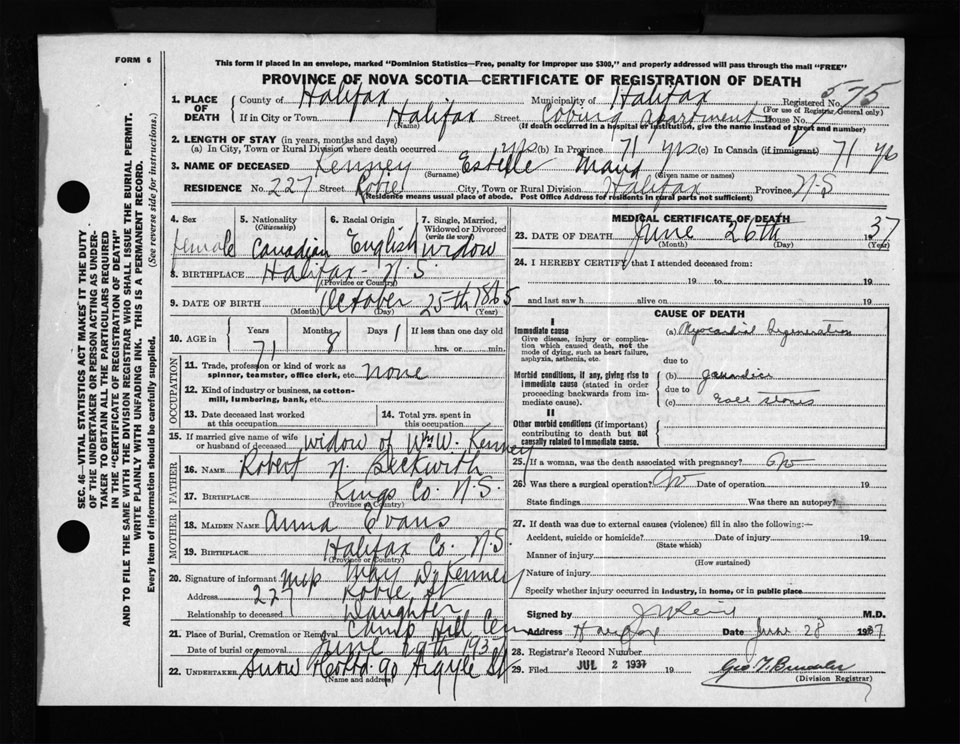 FORM 6
This form if placed in an envelope, marked "Dominion Statistics—Free, penalty for improper use $300," and properly addressed will pass through the mail "FREE"
PROVINCE OF NOVA SCOTIA—CERTIFICATE OF REGISTRATION OF DEATH
SEC. 46—VITAL STATISTICS ACT MAKES IT THE DUTY
OF THE UNDERTAKER OR PERSON ACTING AS UNDER-
TAKER TO OBTAIN ALL THE PARTICULARS REQUIRED
IN THE "CERTIFICATE OF REGISTRATION OF DEATH"
AND TO FILE THE SAME WITH THE DIVISION REGISTRAR WHO SHALL ISSUE THE BURIAL PERMIT.
WRITE PLAINLY WITH UNFADING INK. THIS IS A PERMANENT RECORD.
Every item of information should be carefully supplied. (See reverse side for instructions.)
1. PLACE OF DEATH County of Halifax Municipality of Halifax Registered No. 575
(For use of Registrar General only)
If in City or Town Halifax Street Coburg apartment House No.
(Name) (If death occurred in a hospital or institution, give the name instead of street and number)
2. LENGTH OF STAY (in years, months and days)
(a) In City, Town or Rural Division where death occurred yrs (b) In Province 71 yrs (c) In Canada (if immigrant) 71 yrs
3. NAME OF DECEASED Kenney Estelle Maud
(Surname) (Given name or names)
RESIDENCE No. 227 Street Robie City, Town or Rural Division Halifax Province N-S
(Residence means usual place of abode. Post Office Address for residents in rural parts not sufficient)
4. Sex female
5. Nationality (Citizenship) Canadian
6. Racial Origin English
7. Single, Married, Widowed or Divorced (Write the word) Widow
8. BIRTHPLACE Halifax - N.S.
(Province or Country)
9. DATE OF BIRTH October 25th 1865
(Month) (Day) (Year)
10. AGE in Years 71 Months 8 Days 1 If less than one day old
hrs. or min.
OCCUPATION
11. Trade, profession or kind of work as spinner, teamster, office clerk, etc. none
12. Kind of industry or business, as cotton-mill, lumbering, bank, etc.
13. Date deceased last worked at this occupation
14. Total yrs. spent in this occupation
15. If married give name of wife or husband of deceased widow of Wm W. Kenney
FATHER
16. NAME Robert N. Beckwith
17. BIRTHPLACE Kings Co. N.S.
(Province or Country)
MOTHER
18. MAIDEN NAME Anna Evans
19. BIRTHPLACE Halifax Co. N.S.
(Province or Country)
20. Signature of informant May Kenney
Address 227 Robie St
Relationship to deceased Daughter
21. Place of Burial, Cremation or Removal Camp Hill Cem
Date of burial or removal June 29th 1937
22. UNDERTAKER Snow 90 Argyle St
(Name and address)
MEDICAL CERTIFICATE OF DEATH
23. DATE OF DEATH June 26th 1937
(Month) (Day) (Year)
24. I HEREBY CERTIFY that I attended deceased from:
19 to 19
and last saw h alive on 19
CAUSE OF DEATH
I
Immediate cause
Give disease, injury or complication which caused death, not the mode of dying, such as heart failure, asphyxia, asthenia, etc.
(a) Myocardial Degeneration
due to
Morbid conditions, if any, giving rise to immediate cause (stated in order proceeding backwards from immediate cause).
(b) Jaundice
due to
(c) Gall stones
II
Other morbid conditions (if important) contributing to death but not causally related to immediate cause.
25. If a woman, was the death associated with pregnancy? No
26. Was there a surgical operation? No Date of operation 19
State findings Was there an autopsy?
27. If death was due to external causes (violence) fill in also the following:—
Accident, suicide or homicide? Date of injury 19
(State which)
Manner of injury
(How sustained)
Nature of injury
Specify whether injury occurred in industry, in home, or in public place
Signed by M.D.
Address Halifax Date June 28 1937
28. Registrar's Record Number
29. Filed JUL 2 1937 19
(Division Registrar)